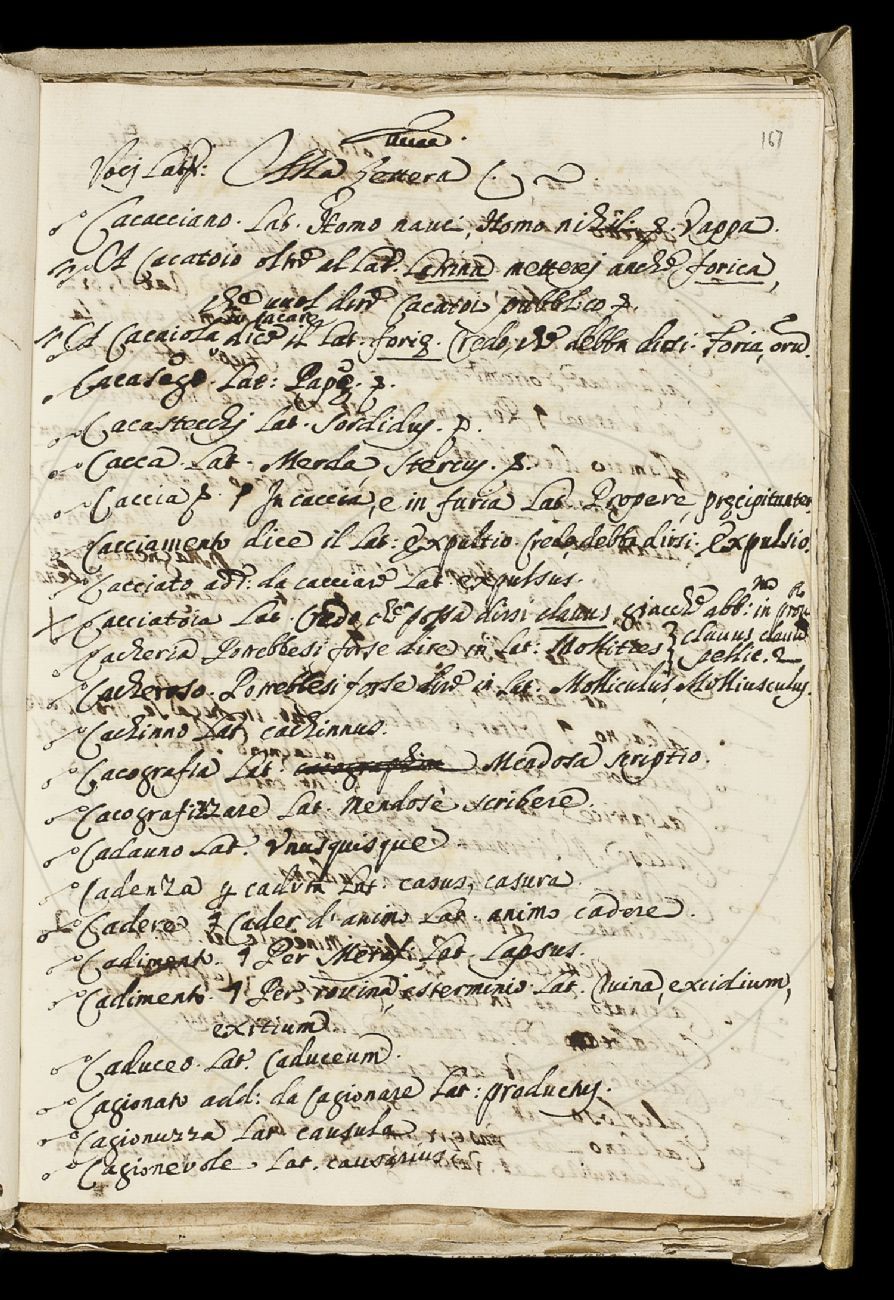 167
Alla Lettera C.
Cacacciano. Lat. Homo nauci, Homo nihili. Vappa.
A Cacatoio oltre al Lat. Latrina metterej anche forica,
che vuol dire Cacatoi pubblico
A Cacaiola dice il Lat. Credo, che debba dirsi. Foria, orum.
Cacasego. Lat: Pape.
Cacastecchj Lat. Sordidus.
Cacca. Lat. Merda, Stercus.
Caccia In caccia, e in furia Lat. Propere, precipitanter
Cacciamento dice il Lat: expultio. Credo, debba dirsi. Expulsio.
Cacciato add: da cacciare Lat. expulsus.
Cacciatoia Lat. Credo che possa dirsi clavus, giacche abb: in
clavus
Cacheria Potrebbesi forse dire in Lat: Mollities
Cacheroso. Potrebbesi forse dire in Lat. Molliculus, Molliusculus.
Cachinno Lat, cachinnus.
Cacografia Lat: cacographia Mendosa scriptio.
Cacografizzare Lat. Mendose scribere.
Cadauno Lat. Vnusquisque
Cadenza caduta Lat: casus, casura
Cadere Cader d'animo Lat. animo cadere.
Cadimento. Per Lat. Lapsus.
Cadimento. Per rovina, esterminio. Lat. Ruina, excidium,
exitium
Caduceo. Lat. Caduceum.
Cagionato add: da Cagionare Lat: productus.
Cagionuzza Lat causula
Cagionevole. Lat. causarius